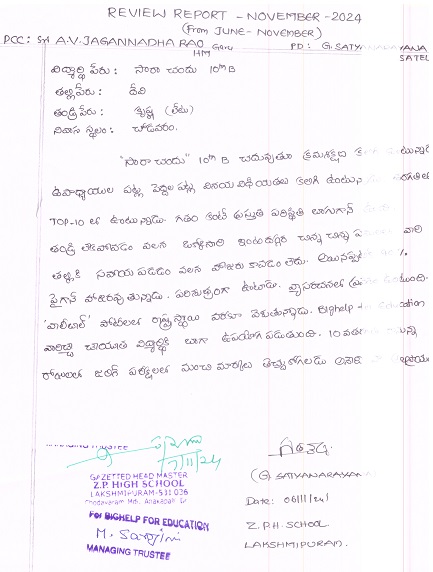 REVIEW REPORT - NOVEMBER - 2024
(From JUNE - NOVEMBER)
PCC: Sri A.V. JAGANNADHA RAO Garu HM PD: G. SATYANARAYANA
విద్యార్థి పేరు: సారా చందు 10th B
తల్లి పేరు: దేవి
తండ్రి పేరు: కృష్ణ (లేటు)
నివాస స్థలం: చూడవరం.
"సారా చందు" 10th B చదువుతూ క్రమశిక్షణ
ఉపాధ్యాయుల పట్ల పెద్దల పట్ల వినయ విధేయతలు కలిగి
TOP-10 లో ఉంటున్నాడు. గతం కంటే ప్రస్తుత పరిస్థితి బాగుగానే
తండ్రి లేకపోవడం వలన ఒక్కోసారి ఇంటిదగ్గర చిన్న చిన్న
తల్లికి సహాయ పడడం వలన హాజరు కావడం లేదు.
పైగానే హాజరవుతున్నాడు. పరిశుభ్రంగా ఉంటాడు.
'వాలీబాల్' పోటీలలో రాష్ట్రస్థాయి వరకూ వెళుతున్నాడు. Bighelp
వారిచ్చే చేయూత విద్యార్థికి బాగా ఉపయోగ పడుతుంది. 10 వతరగతి
రోజులలో జరిగే పరీక్షలలో మంచి మార్కులు తెచ్చుకోగలడు
MANAGING TRUSTEE
7/11/24
GAZETTED HEAD MASTER
Z.P. HIGH SCHOOL
LAKSHMIPURAM-531 036
Chodavaram Mdl, Anakapalli Dt
For BIGHELP FOR EDUCATION
M. Sarojini
MANAGING TRUSTEE
(G. SATYANARAYANA
Date: 06/11/24
Z.P.H. SCHOOL
LAKSHMIPURAM.